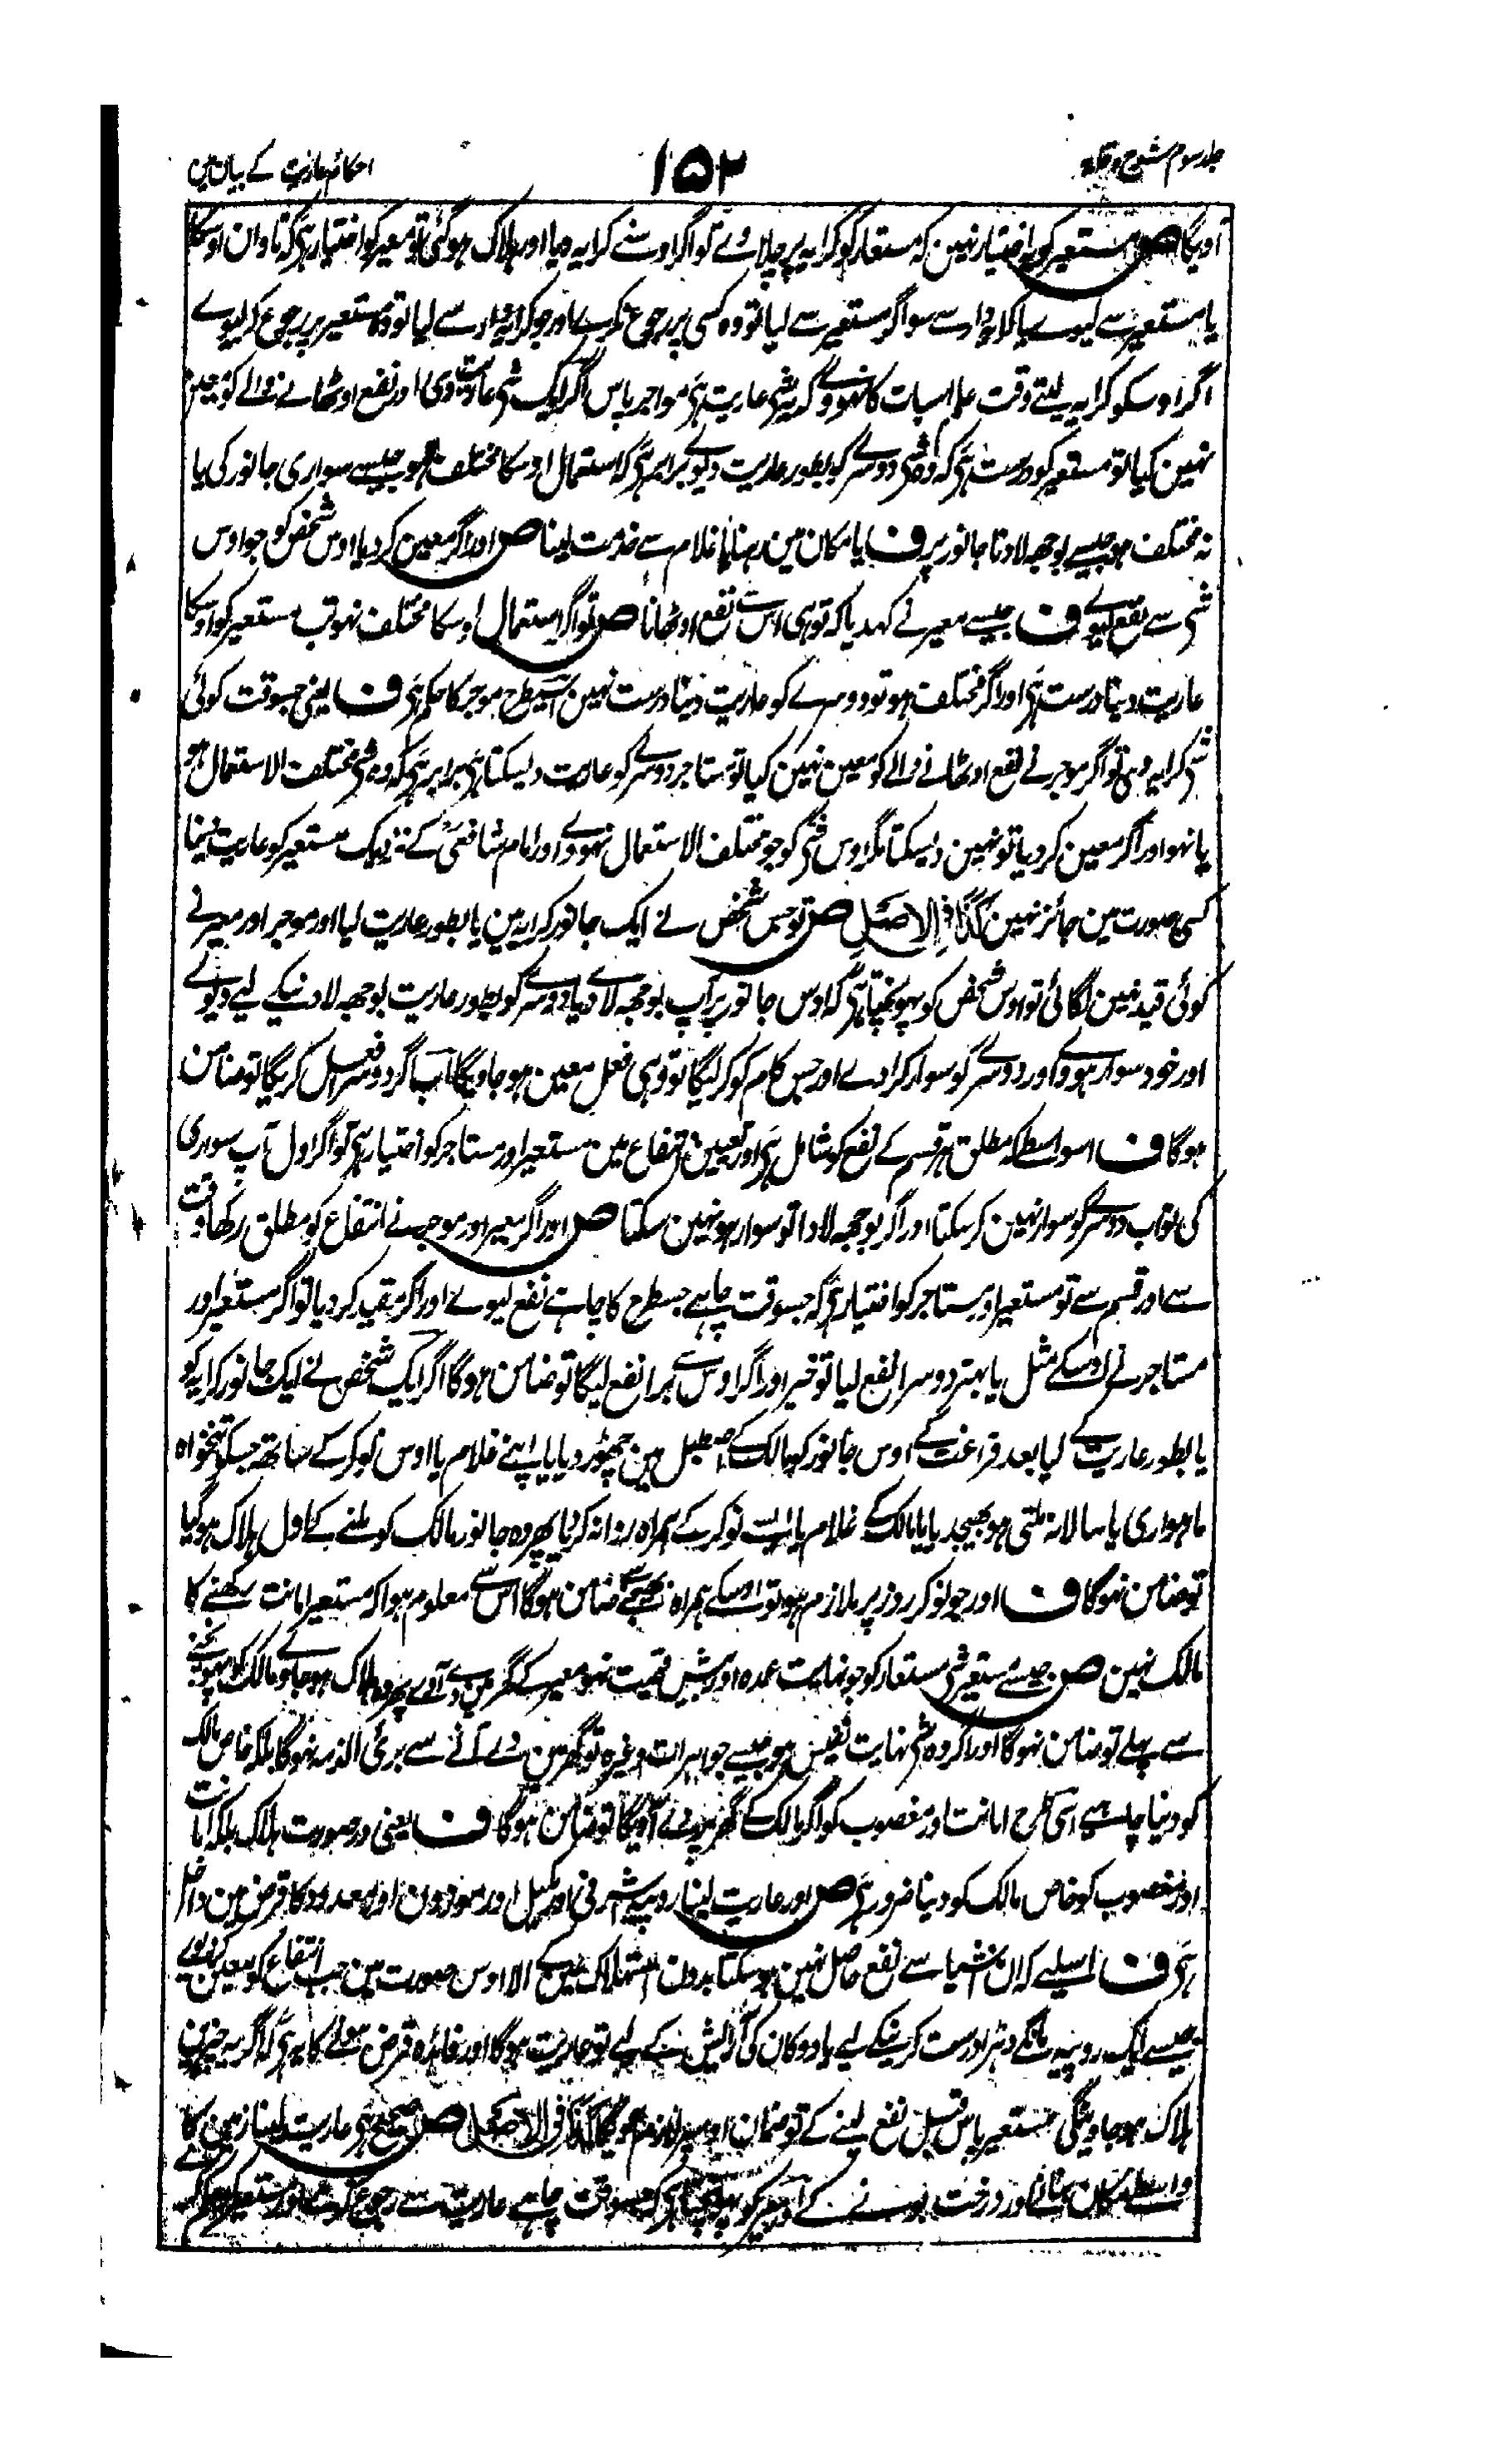 جلد سوم شرح وقایہ
۱۵۲
احکام عاریت کے بیان میں
آویگا ص مستعیر کو اختیار نہین کہ مستعار کو کرایہ پر چلاوے تو اگر اوسنے کرایہ دیا اور ہلاک ہوگئی تو معیر کو اختیار ہی کہ تاوان اوسکا
یا مستعیر سے لیوے یا کرایہ دار سے سو اگر مستعیر سے لیا تو وہ کسی پر رجوع نکرے اور جو کرایہ دار سے لیا تو وہ مستعیر پر رجوع کر لیوے
اگر اوسکو کرایہ لیتے وقت علم اسبات کا نہووے کہ یہ شی عاریت ہی مواجر پاس اگر ایک شی عاریت دی اور نفع اوٹھانے والے کو معین
نہین کیا تو مستعیر کو درست ہی کہ وہ شی دوسرے کو بطور عاریت دیوے برابر ہی کہ استعمال اوسکا مختلف ہو جیسے سواری جانور کی یا
نہ مختلف ہو جیسے بوجھ لادنا جانور پر ف یا مکان مین رہنا یا غلام سے خدمت لینا ص اور اگر معین کردیا اوس شخص کو جو اوس
شی سے نفع لیوے ف جیسے معیر نے کہدیا کہ تو ہی اس سے نفع اوٹھانا ص تو اگر استعمال اوسکا مختلف نہو تب مستعیر کو اوسکا
عاریت دینا درست ہی اور اگر مختلف ہو تو دوسرے کو عاریت دینا درست نہین اسیطرح موجر کا حکم ہی ف یعنی جسوقت کوئی
شی کرایہ دی تو اگر موجر نے نفع اوٹھانے والے کو معین نہین کیا تو مستاجر دوسرے کو عاریت دیسکتا ہی برابر ہی کہ وہ شی مختلف الاستعمال ہو
یا نہو اور اگر معین کردیا تو نہین دیسکتا مگر اوس شی کو جو مختلف الاستعمال نہووے اور امام شافعیؒ کے نزدیک مستعیر کو عاریت دینا
کسی صورت مین جائز نہین کذا فی الاصل ص تو جس شخص نے ایک جانور کرایہ مین یا بطور عاریت لیا اور موجر اور معیر نے
کوئی قید نہین لگائی تو اوس شخص کو پہونچتا ہی کہ اوس جانور پر آپ بوجھ لادے یا دوسرے کو بطور عاریت بوجھ لادنیکے لیے دیوے
اور خود سوار ہووے اور دوسرے کو سوار کرادے اور جس کام کو کر لیگا تو وہی فعل معین ہو جاویگا اب اگر دوسرا فعل کریگا تو ضامن
ہوگا ف اسواسطے کہ مطلق ہر قسم کے نفع کو شامل ہی اور تعیین انتفاع مین مستعیر اور مستاجر کو اختیار ہی تو اگر اول آپ سواری
کی تو اب دوسرے کو سوار نہین کرسکتا اور اگر بوجھ لادا تو سوار ہو نہین سکتا ص اور اگر معیر اور موجر نے انتفاع کو مطلق رکھا وقت
سے اور قسم سے تو مستعیر اور مستاجر کو اختیار ہی کہ جسوقت چاہے جسطرح کا چاہے نفع لیوے اور اگر مقید کردیا تو اگر مستعیر اور
مستاجر نے اوسکے مثل یا بہتر دوسرا نفع لیا تو خیر اور اگر اوس سے برا نفع لیگا تو ضامن ہوگا اگر ایک شخص نے ایک جانور کرایہ کو
یا بطور عاریت کے لیا بعد فراغت کے اوس جانور کو مالک کے اصطبل مین چھوڑ دیا یا اپنے غلام یا اوس نوکر کے ساتھ جسکو تنخواہ
ماہواری یا سالانہ ملتی ہو بھیجدیا یا مالک کے غلام یا نوکر کے ہمراہ روانہ کردیا پھر وہ جانور مالک کو ملنے کے اول ہلاک ہوگیا
تو ضامن نہوگا ف اور جو نوکر روز پر ملازم ہو تو اوسکے ہمراہ بھیجنے سے ضامن ہوگا اس سے معلوم ہوا کہ مستعیر امانت رکھنے کا
مالک نہین ص جیسے مستعیر شی مستعار کو جو نہایت عمدہ اور بیش قیمت نہو معیر کے گھر مین دے آوے پھر وہ ہلاک ہو جاوے مالک کو پہونچنے
سے پہلے تو ضامن نہوگا اور اگر وہ شی نہایت نفیس ہو جیسے جواہرات وغیرہ تو گھر مین دے آنے سے برئ الذمہ نہوگا بلکہ خاص مالک
کو دینا چاہیے اسی طرح امانت اور مغصوب کو اگر مالک کے گھر مین دے آویگا تو ضامن ہوگا ف یعنی در صورت ہلاک بلکہ امانت
اور مغصوب کو خاص مالک کو دینا ضرور ہی ص اور عاریت لینا روپیہ اشرفی اور مکیل اور موزون اور معدود کا قرض مین داخل
ہی ف اسلیے کہ ان اشیا سے نفع حاصل نہین ہوسکتا بدون استہلاک عین کے الا اوس صورت مین جب انتفاع کو معین کردیوے
جیسے ایک روپیہ مانگے دھڑا درست کرنیکے لیے یا دوکان کی آرایش کے لیے تو عاریت ہوگا اور فائدہ قرض ہونے کا یہ ہی کہ اگر یہ چیزین
ہلاک ہو جاوینگی مستعیر پاس قبل نفع لینے کے تو ضمان اوسپر لازم ہوگا کذا فی الاصل ص صحیح ہی عاریت لینا زمین کا
واسطے مکان بنانے اور درخت بونے کے اور معیر کو پہونچتا ہی کہ جسوقت چاہے عاریت سے رجوع کرے اور مستعیر کو